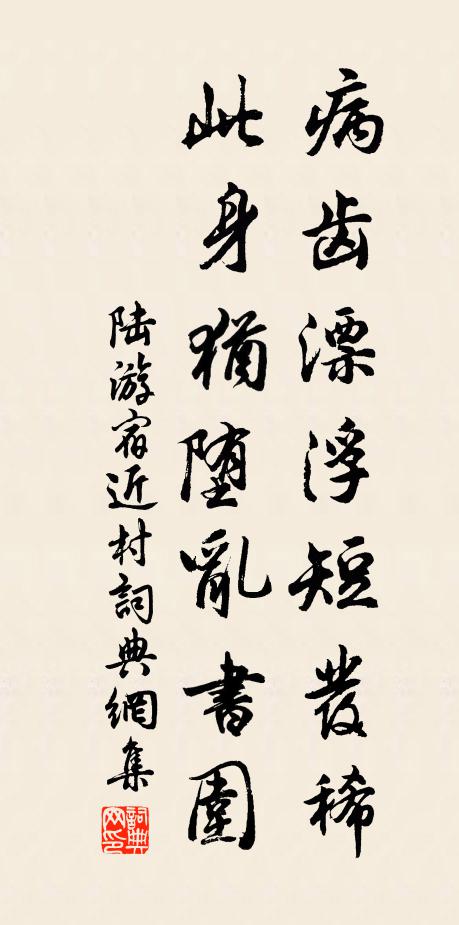 病齿漂浮短發稀
此身猶堕亂書圍
陆游宿近村詞典網集
詞典網印